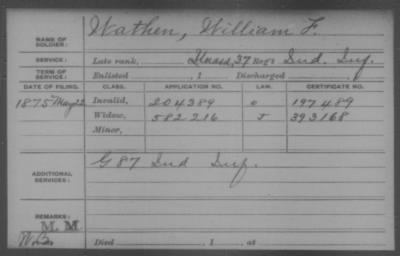 NAME OF SOLDIER: Wathen, William F.
SERVICE: Late rank, Unass'd, 37 Reg't Ind. Inf.
TERM OF SERVICE: Enlisted , 1 Discharged
DATE OF FILING. CLASS. APPLICATION NO. LAW. CERTIFICATE NO.
1875 May 22 Invalid, 204389 197489
Widow, 582216 J 393168
Minor,
ADDITIONAL SERVICES: G 87 Ind Inf.
REMARKS: M. M.
Died , 1 , at